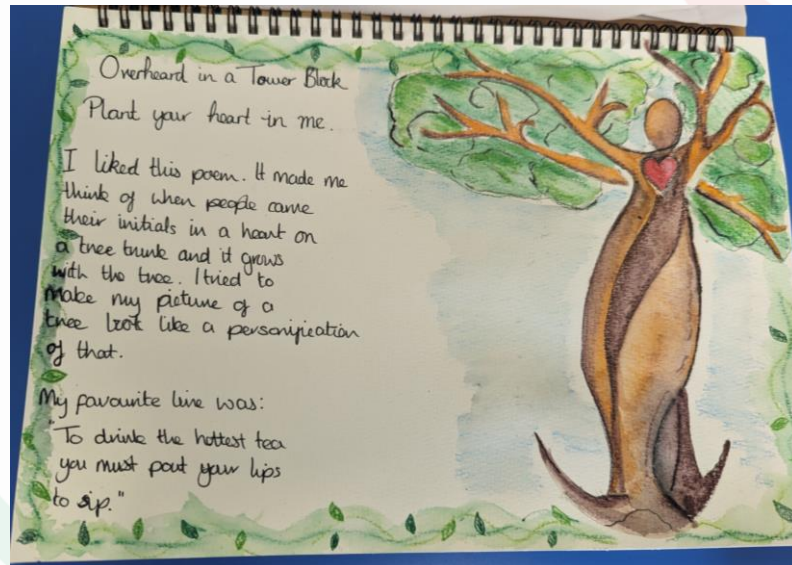 Overheard in a Tower Block
Plant your heart in me.
I liked this poem. It made me
think of when people carve
their initials in a heart on
a tree trunk and it grows
with the tree. I tried to
make my picture of a
tree look like a personification
of that.
My favourite line was:
"To drink the hottest tea
you must pout your lips
to sip."